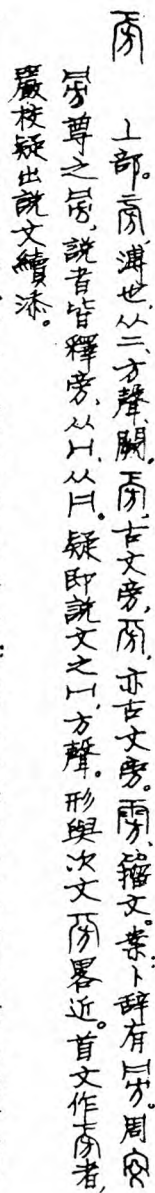 㫄 丄部。㫄,溥也。从二,方聲,闕。㫄,古文旁,㫄,亦古文旁。雱,籀文。案卜辭有㫄。周
㫄尊之㫄,說者皆釋旁,从冂,从冃。疑即說文之冂,方聲。形與次文㫄畧近。首文作㫄者,
嚴校疑出說文續添。